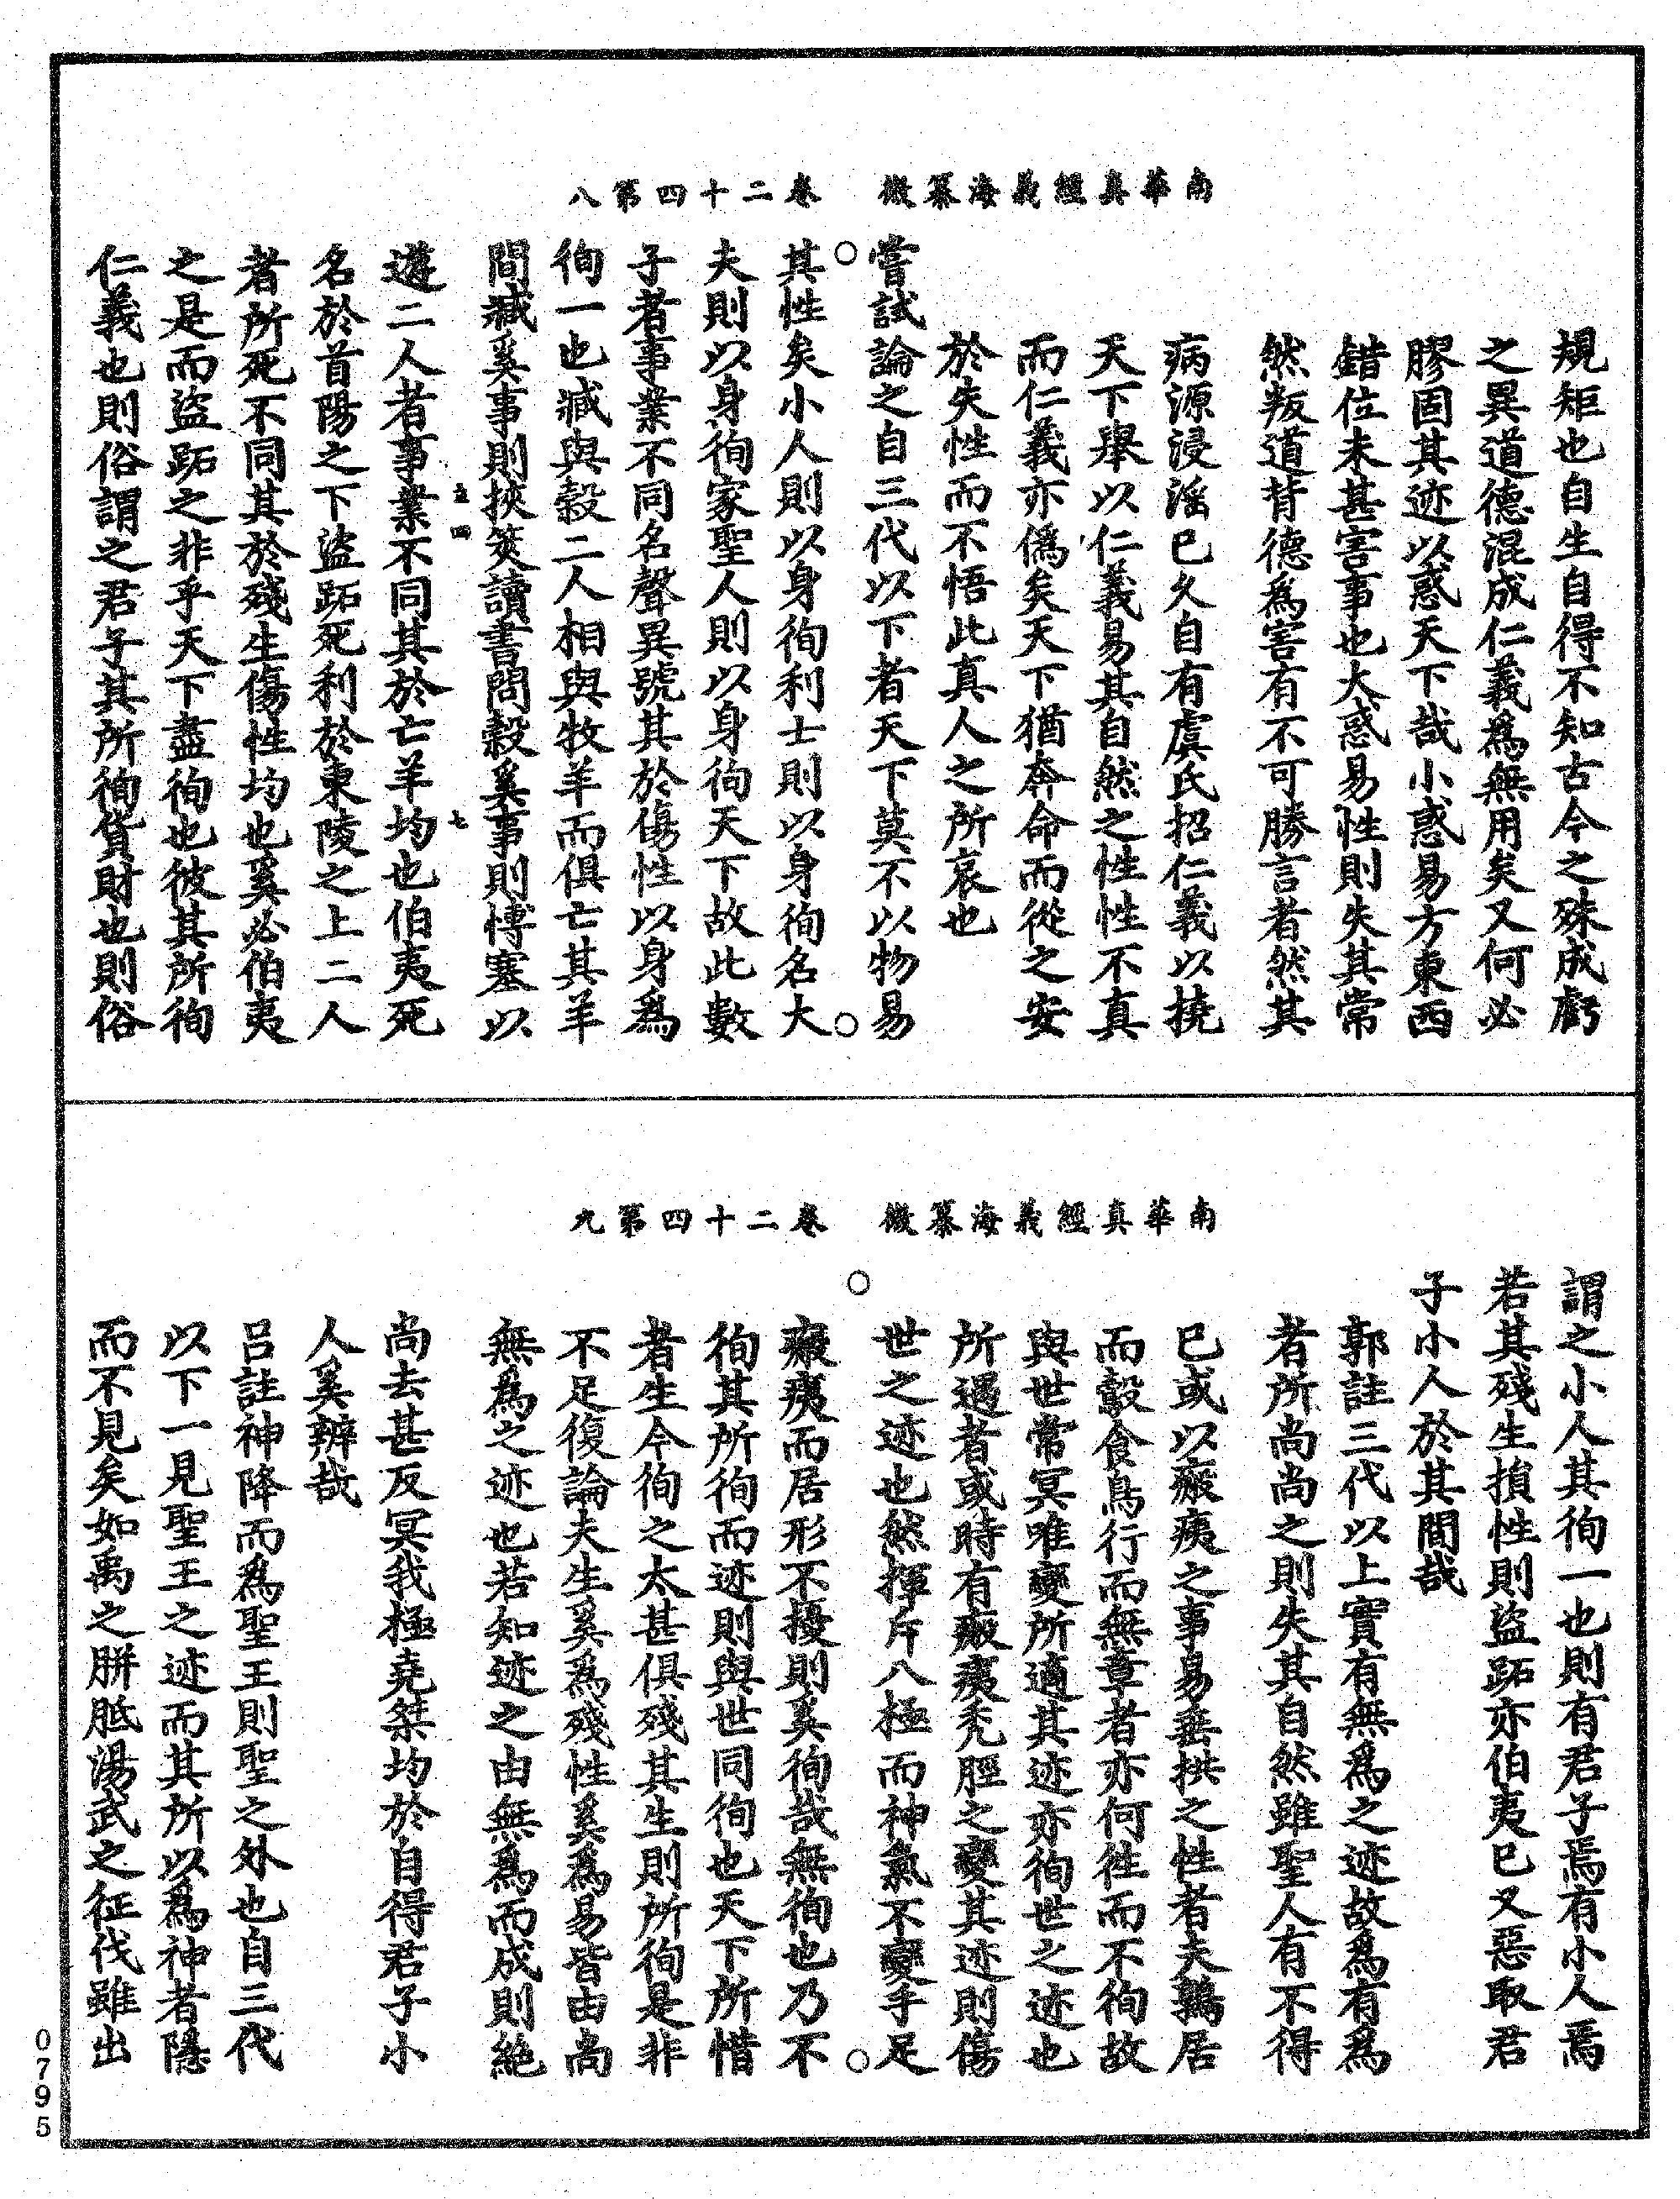 南華真經義海纂微　卷二十四第八
規矩也自生自得不知古今之殊成虧
之異道德混成仁義爲無用矣又何必
膠固其迹以惑天下哉小惑易方東西
錯位未甚害事也大惑易性則失其常
然叛道背德爲害有不可勝言者然其
病源浸淫已久自有虞氏招仁義以撓
天下舉以仁義易其自然之性性不真
而仁義亦僞矣天下猶奔命而從之安
於失性而不悟此真人之所哀也
嘗試論之自三代以下者天下莫不以物易
其性矣小人則以身徇利士則以身徇名大
夫則以身徇家聖人則以身徇天下故此數
子者事業不同名聲異號其於傷性以身爲
徇一也臧與穀二人相與牧羊而俱亡其羊
問臧奚事則挾筴讀書問穀奚事則博塞以
遊二人者事業不同其於亡羊均也伯夷死
名於首陽之下盜跖死利於東陵之上二人
者所死不同其於殘生傷性均也奚必伯夷
之是而盜跖之非乎天下盡徇也彼其所徇
仁義也則俗謂之君子其所徇貨財也則俗
南華真經義海纂微　卷二十四第九
謂之小人其徇一也則有君子焉有小人焉
若其殘生損性則盜跖亦伯夷已又惡取君
子小人於其間哉
郭註三代以上實有無爲之迹故爲有爲
者所尚尚之則失其自然雖聖人有不得
已或以瘢痍之事易垂拱之性者夫鶉居
而鷇食鳥行而無章者亦何徃而不徇故
與世常冥唯變所適其迹亦徇世之迹也
所遇者或時有瘢痍禿脛之變其迹則傷
世之迹也然揮斥八極而神氣不變手足
瘢痍而居形不擾則奚徇哉無徇也乃不
徇其所徇而迹則與世同徇也天下所惜
者生今徇之太甚俱殘其生則所徇是非
不足復論夫生奚為殘性奚為易皆由尚
無為之迹也若知迹之由無爲而成則絕
尚去甚反冥我極堯桀均於自得君子小
人奚辨哉
呂註神降而爲聖王則聖之外也自三代
以下一見聖王之迹而其所以爲神者隱
而不見矣如禹之胼胝湯武之征伐雖出
0795